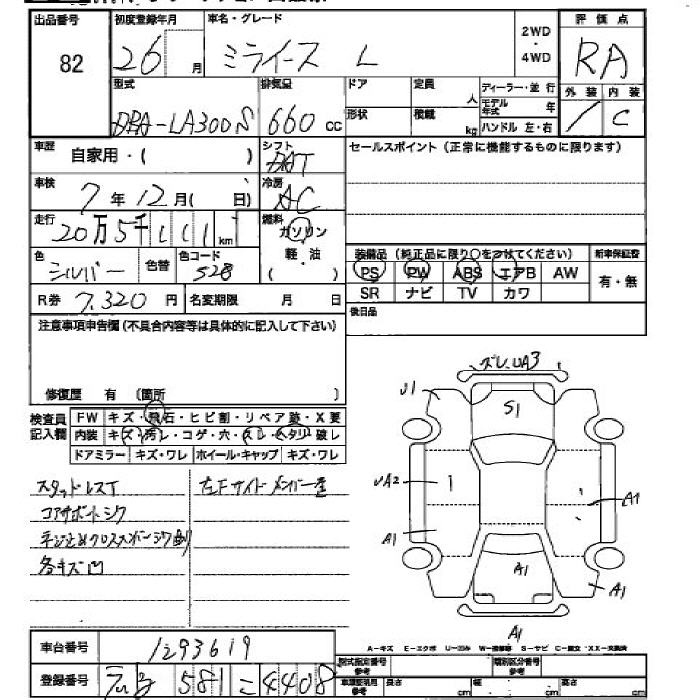 出品番号 初度登録年月 車名・グレード 2WD・4WD 評価点
82 26 月 ミライース L RA
型式 排気量 ドア 定員 人 ディーラー・並行 外装 内装
DBA-LA300S 660cc 形状 積載 kg モデル年式 年 ハンドル 左・右 C
車歴 自家用・( ) シフト DAT セールスポイント(正常に機能するものに限ります)
車検 7年12月( 日) 冷房 AC
走行 20万5千 km 燃料 ガソリン
軽・油
( )
色 シルバー 色替 色コード S28
装備品(純正品に限り○をつけてください) 新車保証書
PS PW ABS エアB AW 有・無
SR ナビ TV カワ
R券 7,320円 名変期限 月 日
後日品
注意事項申告欄(不具合内容等は具体的に記入して下さい)
修復歴 有 〔箇所 〕
検査員記入欄
FW キズ・飛石・ヒビ割・リペア跡・X要
内装 キズ・汚レ・コゲ・穴・スレ・ヘタリ・破レ
ドアミラー キズ・ワレ ホイール・キャップ キズ・ワレ
スタッドレスT
左Fサイドメンバー歪
コアサポートシワ
各キズ凹
ズレ、UA3
U1
S1
UA2
A1
A1
A1
A1
A1
車台番号 1293619
登録番号 581 こ 4408
A－キズ E－エクボ U－凹み W－補修跡 S－サビ C－腐食 XX－交換済
型式指定番号 参考 類別区分番号 参考
長さ cm 幅 cm 高さ cm